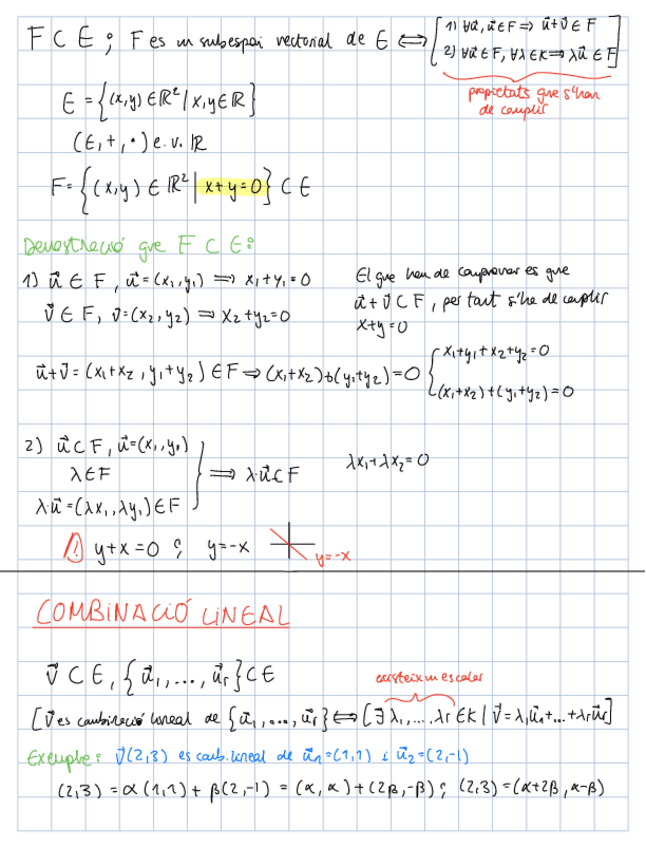 F ⊂ E ; F es un subespai vectorial de E ⟺ [ 1) ∀u⃗, u⃗ ∈ F ⟹ u⃗+v⃗ ∈ F
2) ∀u⃗ ∈ F, ∀λ ∈ K ⟹ λu⃗ ∈ F ]
propietats que s'han
de complir
E = {(x,y) ∈ ℝ² | x,y ∈ ℝ}
(E,+,·) e.v. ℝ
F = {(x,y) ∈ ℝ² | x+y=0} ⊂ E
Demostració que F ⊂ E:
1) u⃗ ∈ F, u⃗=(x₁,y₁) ⟹ x₁+y₁=0
v⃗ ∈ F, v⃗=(x₂,y₂) ⟹ x₂+y₂=0
El que hem de comprovar es que
u⃗+v⃗ ⊂ F, per tant s'ha de complir
x+y=0
u⃗+v⃗ = (x₁+x₂, y₁+y₂) ∈ F ⟹ (x₁+x₂)+(y₁+y₂)=0 { x₁+y₁+x₂+y₂=0
(x₁+x₂)+(y₁+y₂)=0
2) u⃗ ⊂ F, u⃗=(x₁,y₁)
λ ∈ F
λ·u⃗=(λx₁,λy₁) ∈ F
} ⟹ λ·u⃗ ⊂ F
λx₁+λx₂=0
! y+x=0 ; y=-x
y=-x
COMBINACIÓ LINEAL
v⃗ ⊂ E, {u⃗₁,...,u⃗r} ⊂ E
existeix un escalar
[v⃗ es combinació lineal de {u⃗₁,...,u⃗r} ⟺ [∃ λ₁,...,λr ∈ K | v⃗=λ₁u⃗₁+...+λru⃗r]
Exemple: v⃗(2,3) es comb. lineal de u⃗₁=(1,1) i u⃗₂=(2,-1)
(2,3) = α(1,1) + β(2,-1) = (α,α)+(2β,-β) ; (2,3)=(α+2β, α-β)